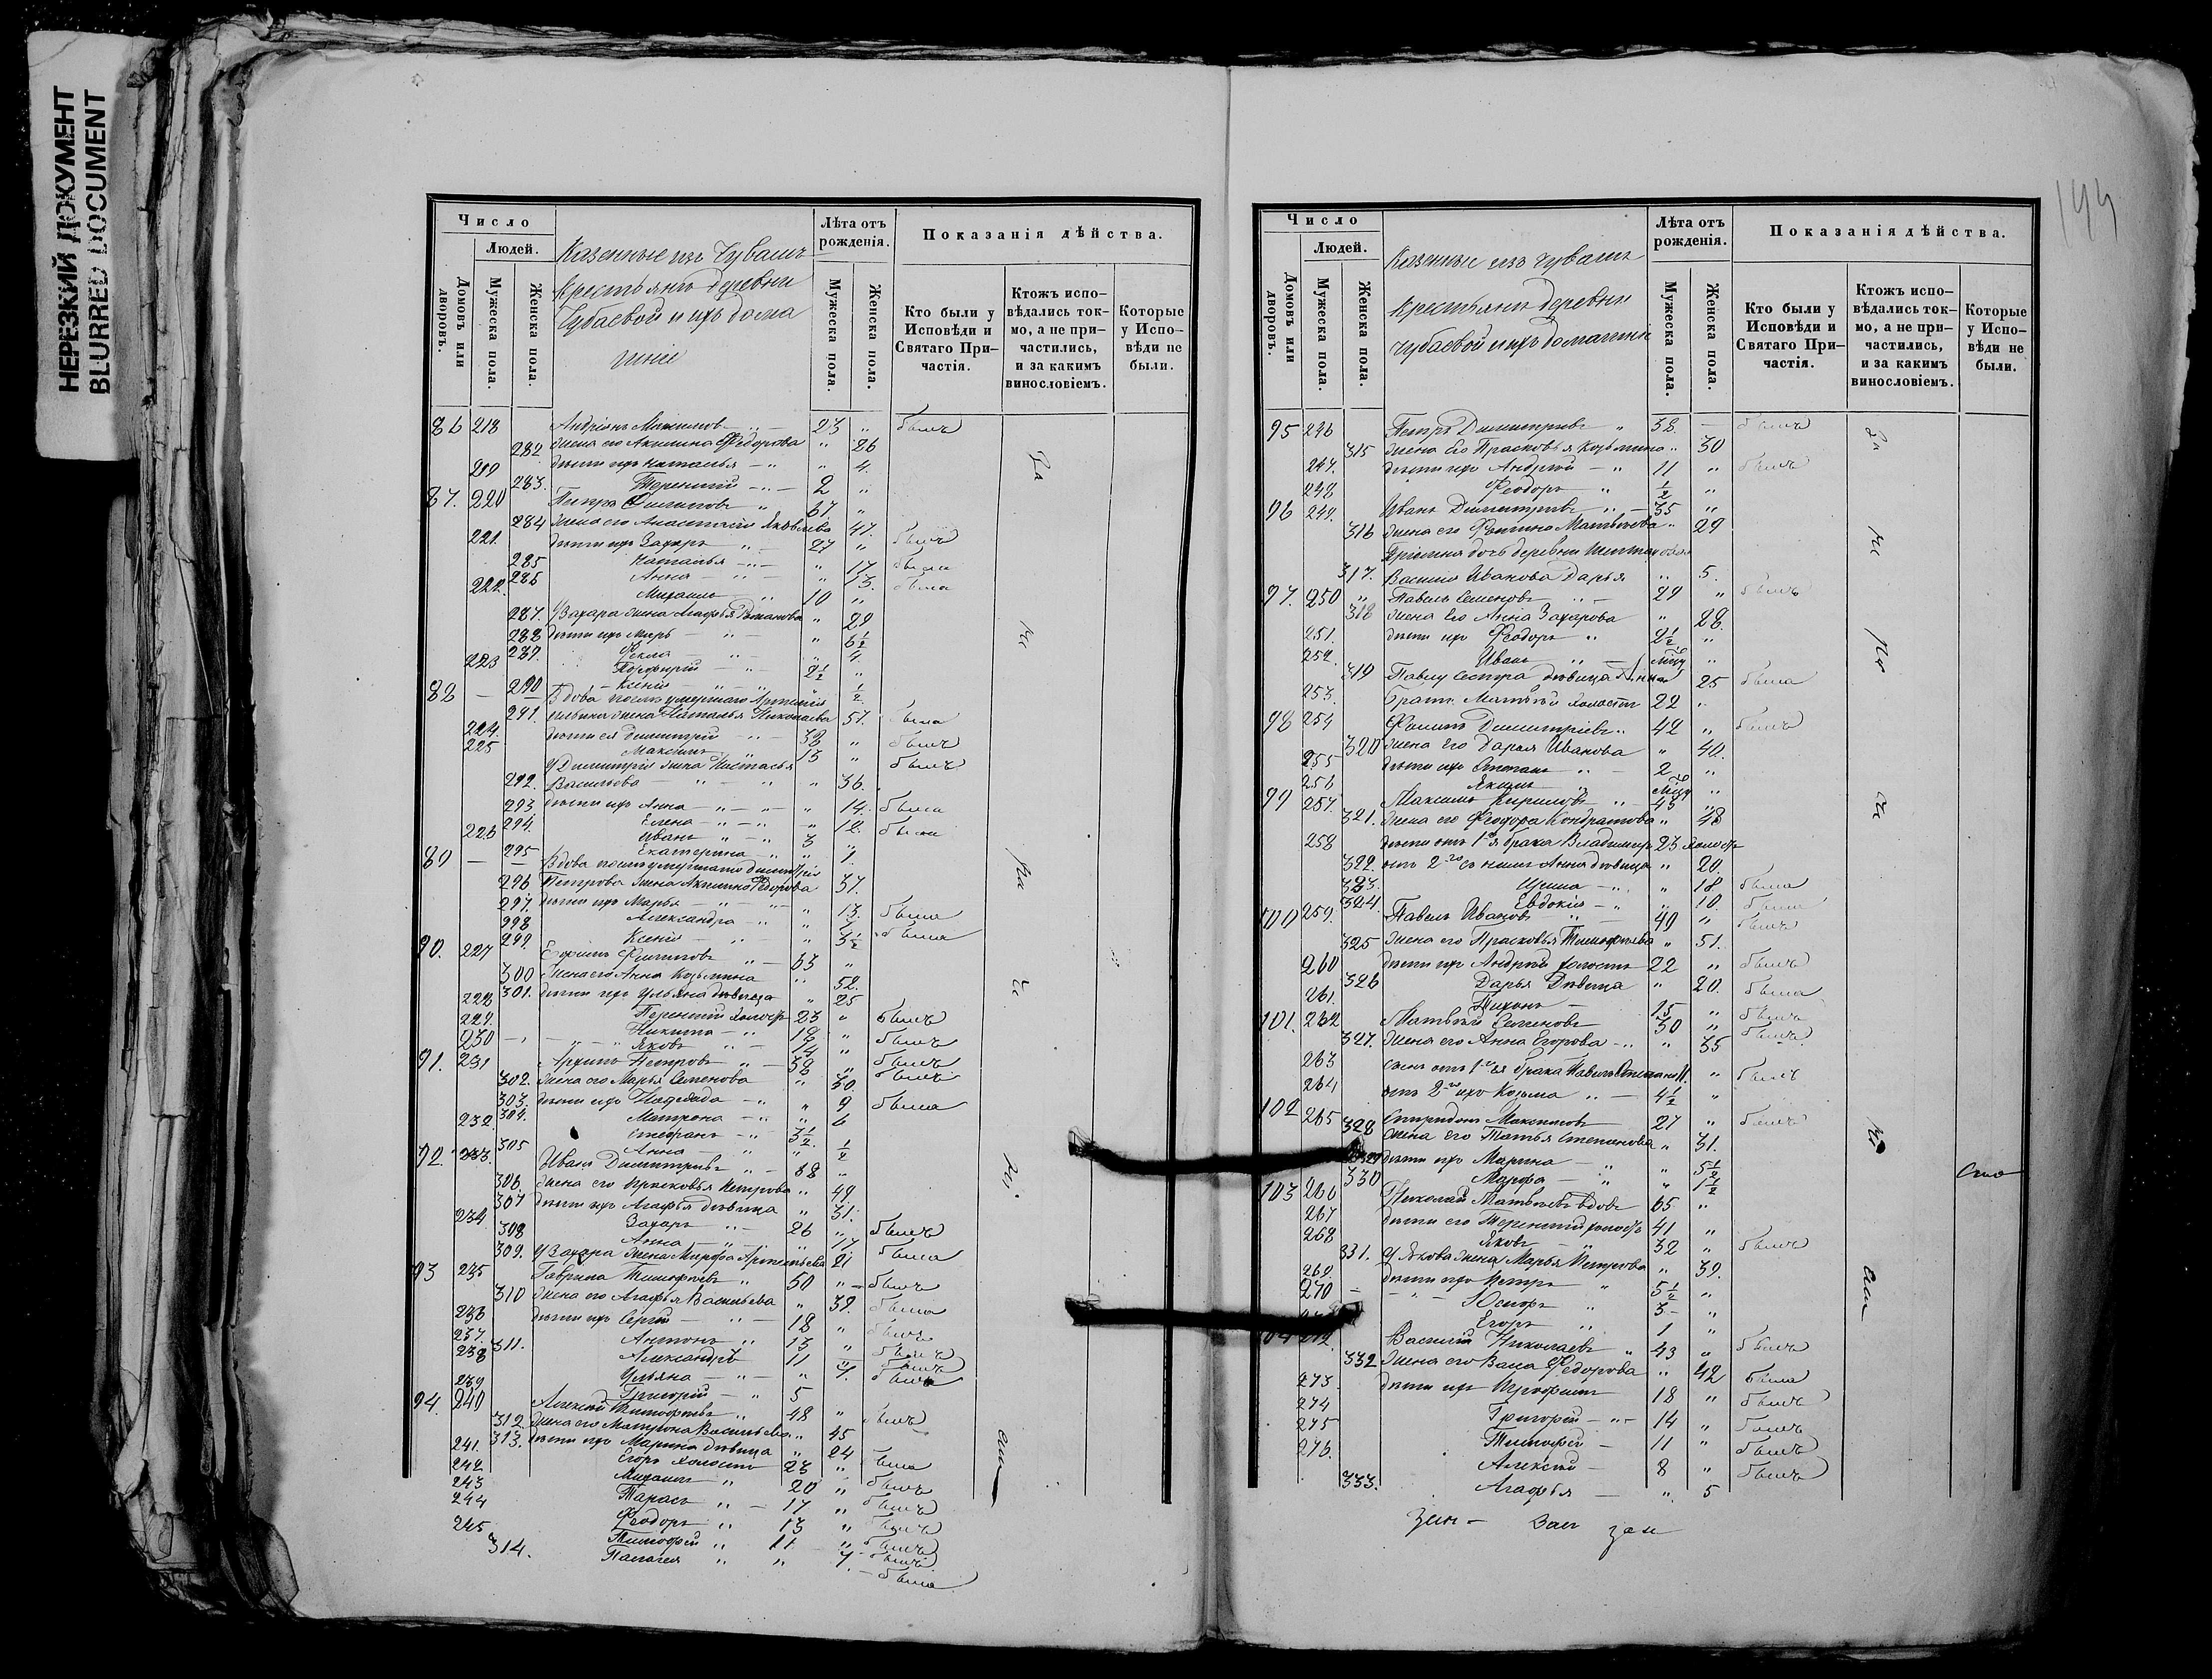 НЕРЕЗКИЙ ДОКУМЕНТ
BLURRED DOCUMENT
Число
Людей.
Домовъ или дворовъ.
Мужеска пола.
Женска пола.
Казенные изъ Чувашъ
крестьянъ деревни
Чубаевой и ихъ дома
шніе
Лѣта отъ рожденія.
Мужеска пола.
Женска пола.
Показанія дѣйства.
Кто были у Исповѣди и Святаго При-частія.
Ктожъ испо-вѣдались ток-мо, а не при-частились, и за какимъ винословіемъ.
Которые у Испо-вѣди не были.
86 218 23 " былъ
282 жена его Акилина Федорова " 26
219 дѣти ихъ Наталья - " - " 4.
283. Терентій - " - 2 "
87. 220 Петръ Филиповъ " 67. "
284 жена его Анастасія Яковлева 47.
221. дѣти ихъ Захаръ " - 27 " былъ
285 Наталья - " - " 17 была
286 Анна - " - " 13. была
222. Михаилъ " 10 "
287. у Захара жена Агафья Романова " 29
288 дѣти ихъ Марья - " - " 6½
289. Фекла - " - " 4.
223 Порфирій - " - 2½ "
290 - Ксенія " - " ½
88 - Вдова послѣ умершаго Артемія
291. жена Наталья Николаева 57. была
224. дѣти ея Димитрій - " - 38 " былъ
225 Максимъ " 13 " былъ
у Димитрія жена Настасья
292. Васильева - " - " - " 36.
293 дѣти ихъ Анна - " - " - " 14. была
294. Елена - " - " - " 12. была
226 Иванъ " - " 3 "
295 Екатерина - " " 1.
89 - Вдова послѣ умершаго Димитрія
296 Петрова жена Акилина Федорова 37.
297. дѣти ихъ Марья - " - " - " 13. была
298 Александра - " - " 7. была
299. Ксенія - " - " 3½
90. 227 Ефимъ Филиповъ " - 63 "
300 жена его Анна Козьмина " 52.
301. дѣти ихъ Ульяна дѣвица " 25
228 Терентій холостъ 23 " былъ
229. Никита - " - 18 " былъ
230 - Яковъ " - 14 " былъ
91. 231 Архипъ Петровъ " - 38 " былъ
302. жена его Марья Семенова " 30
303. дѣти ихъ - " - " 9 была
304. Матрона - " - " 6
232. Стефанъ - " 3½
305 Анна - " " ½
92. 233. Иванъ Димитріевъ " - 68 "
306. жена его Прасковья Петрова " 49.
307 дѣти ихъ Агафья дѣвица " 31.
234 Захаръ " - 26 " былъ
308 Анна - " - " 17 была
309. у Захара жена Марфа Артемьева 21
93 235 Гаврила Тимофѣевъ " 50 " - былъ
310 жена его Агафья Васильева " 39. была
236 дѣти ихъ Сергій - " - 18 " былъ
237. Антонъ " 13 " былъ
238 Александръ 11 " былъ
311. Ульяна - " - " 7. была
239 Григорій - " 5
94. 240 Алексій Тимофѣевъ " 48 " былъ
312. жена его Матрона Васильева " 45
313. дѣти ихъ Марина дѣвица " 24 была
241. Егоръ холостъ 23 " былъ
242. Михаилъ " 20 " былъ
243 Тарасъ " - 17 " былъ
244 Феодоръ " 13 " былъ
245 Тимофей " 11 " былъ
314. Палагея " " 7. - была
144
Число
Людей.
Домовъ или дворовъ.
Мужеска пола.
Женска пола.
Казенные изъ Чувашъ
крестьянъ деревни
Чубаевой и ихъ домашніе
Лѣта отъ рожденія.
Мужеска пола.
Женска пола.
Показанія дѣйства.
Кто были у Исповѣди и Святаго При-частія.
Ктожъ испо-вѣдались ток-мо, а не при-частились, и за какимъ винословіемъ.
Которые у Испо-вѣди не были.
95 246 Петръ Димитріевъ " 38. - былъ
315 жена его Прасковья Козьмина " 30
247. дѣти ихъ Андрей - " 11 " былъ
248 Феодоръ " ½ "
96 249. Иванъ Димитріевъ " - 35 "
316 жена его Матвѣева " 29
дочь деревни
317. Василія Иванова Дарья " 5.
97. 250 Павелъ Семеновъ " - 29 " былъ
318 жена его Анна Захарова " 28.
251. дѣти ихъ Феодоръ " 2½ "
252. Иванъ " - "
319 Павлу сестра дѣвица Анна 25 была
253. братъ Матвѣй холостъ 22 "
98 254 Филипъ Димитріевъ " 42 " былъ
320 жена его Дарья Иванова " 40.
255 дѣти ихъ Степанъ " - 2 "
256 Якимъ " "
99 257. Максимъ Кириловъ " - 43 "
321. жена его Феодора Кондратова " 48
258 дѣти отъ 1го брака Владимиръ 23 холостъ
322. отъ 2го съ нимъ Анна дѣвица " 20.
323. Ирина - " " 18 была
324. Евдокія - " " 10. была
100 259. Павелъ Ивановъ " - 49 " былъ
325 жена его Прасковья Тимофѣева " 51.
260 дѣти ихъ Андрей холостъ 22 " былъ
326 Дарья дѣвица " 20. была
261. Тихонъ - 15 " былъ
101. 262 Матвѣй Семеновъ 30 " былъ
327. жена его Анна Егорова - " " 35
263 сынъ отъ 1го брака 11. " былъ
264 отъ 2го ихъ Козьма " - 4½ "
102 265 Спиридонъ Максимовъ 27 " былъ
328 жена его Татьяна Степанова " 31.
329 дѣти ихъ Марина - " " 5½
330 Марфа - " " 1½
103 266 Николай Матвѣевъ вдовъ 65 "
267 дѣти его Терентій холостъ 41 "
268 Яковъ - " 32 " былъ
331. у Якова жена Марья Петрова " 39.
269. дѣти ихъ Петръ " 5½ "
270 - - " - Юсифъ " 3 - "
Егоръ " 1 "
104 272. Василій Николаевъ " 43 " былъ
332 жена его Васа Федорова " 42 была
273. дѣти ихъ 18 " былъ
274 Григорій - " - 14 " былъ
275 Тимофей - 11 " былъ
276. Алексій - 8 " былъ
333. Агафья - " 5